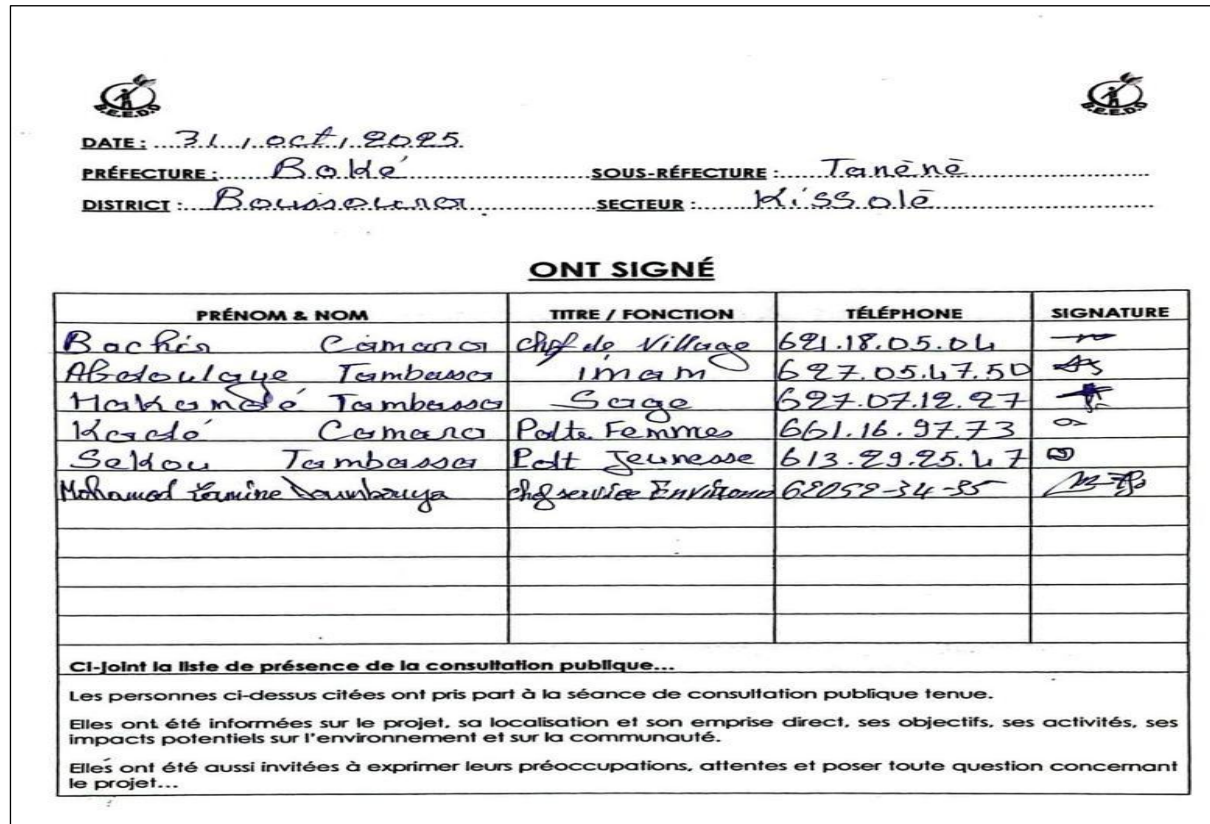 B.E.E.D.D
B.E.E.D.D
DATE : 31, oct, 2025
PRÉFECTURE : Boké SOUS-RÉFECTURE : Tanènè
DISTRICT : Boussoura SECTEUR : Kissolé
ONT SIGNÉ
PRÉNOM & NOM TITRE / FONCTION TÉLÉPHONE SIGNATURE
Camara chef de Village 621.18.05.04
Abdoulaye Tambassa imam 627.05.47.50
Tambassa Sage 627.07.12.27
Camara Pdte Femmes 661.16.97.73
Sekou Tambassa Pdt Jeunesse 613.29.25.47
Mohamed Lamine Doumbouya chef service Environ 62052-34-35
Ci-joint la liste de présence de la consultation publique...
Les personnes ci-dessus citées ont pris part à la séance de consultation publique tenue.
Elles ont été informées sur le projet, sa localisation et son emprise direct, ses objectifs, ses activités, ses
impacts potentiels sur l'environnement et sur la communauté.
Elles ont été aussi invitées à exprimer leurs préoccupations, attentes et poser toute question concernant
le projet...